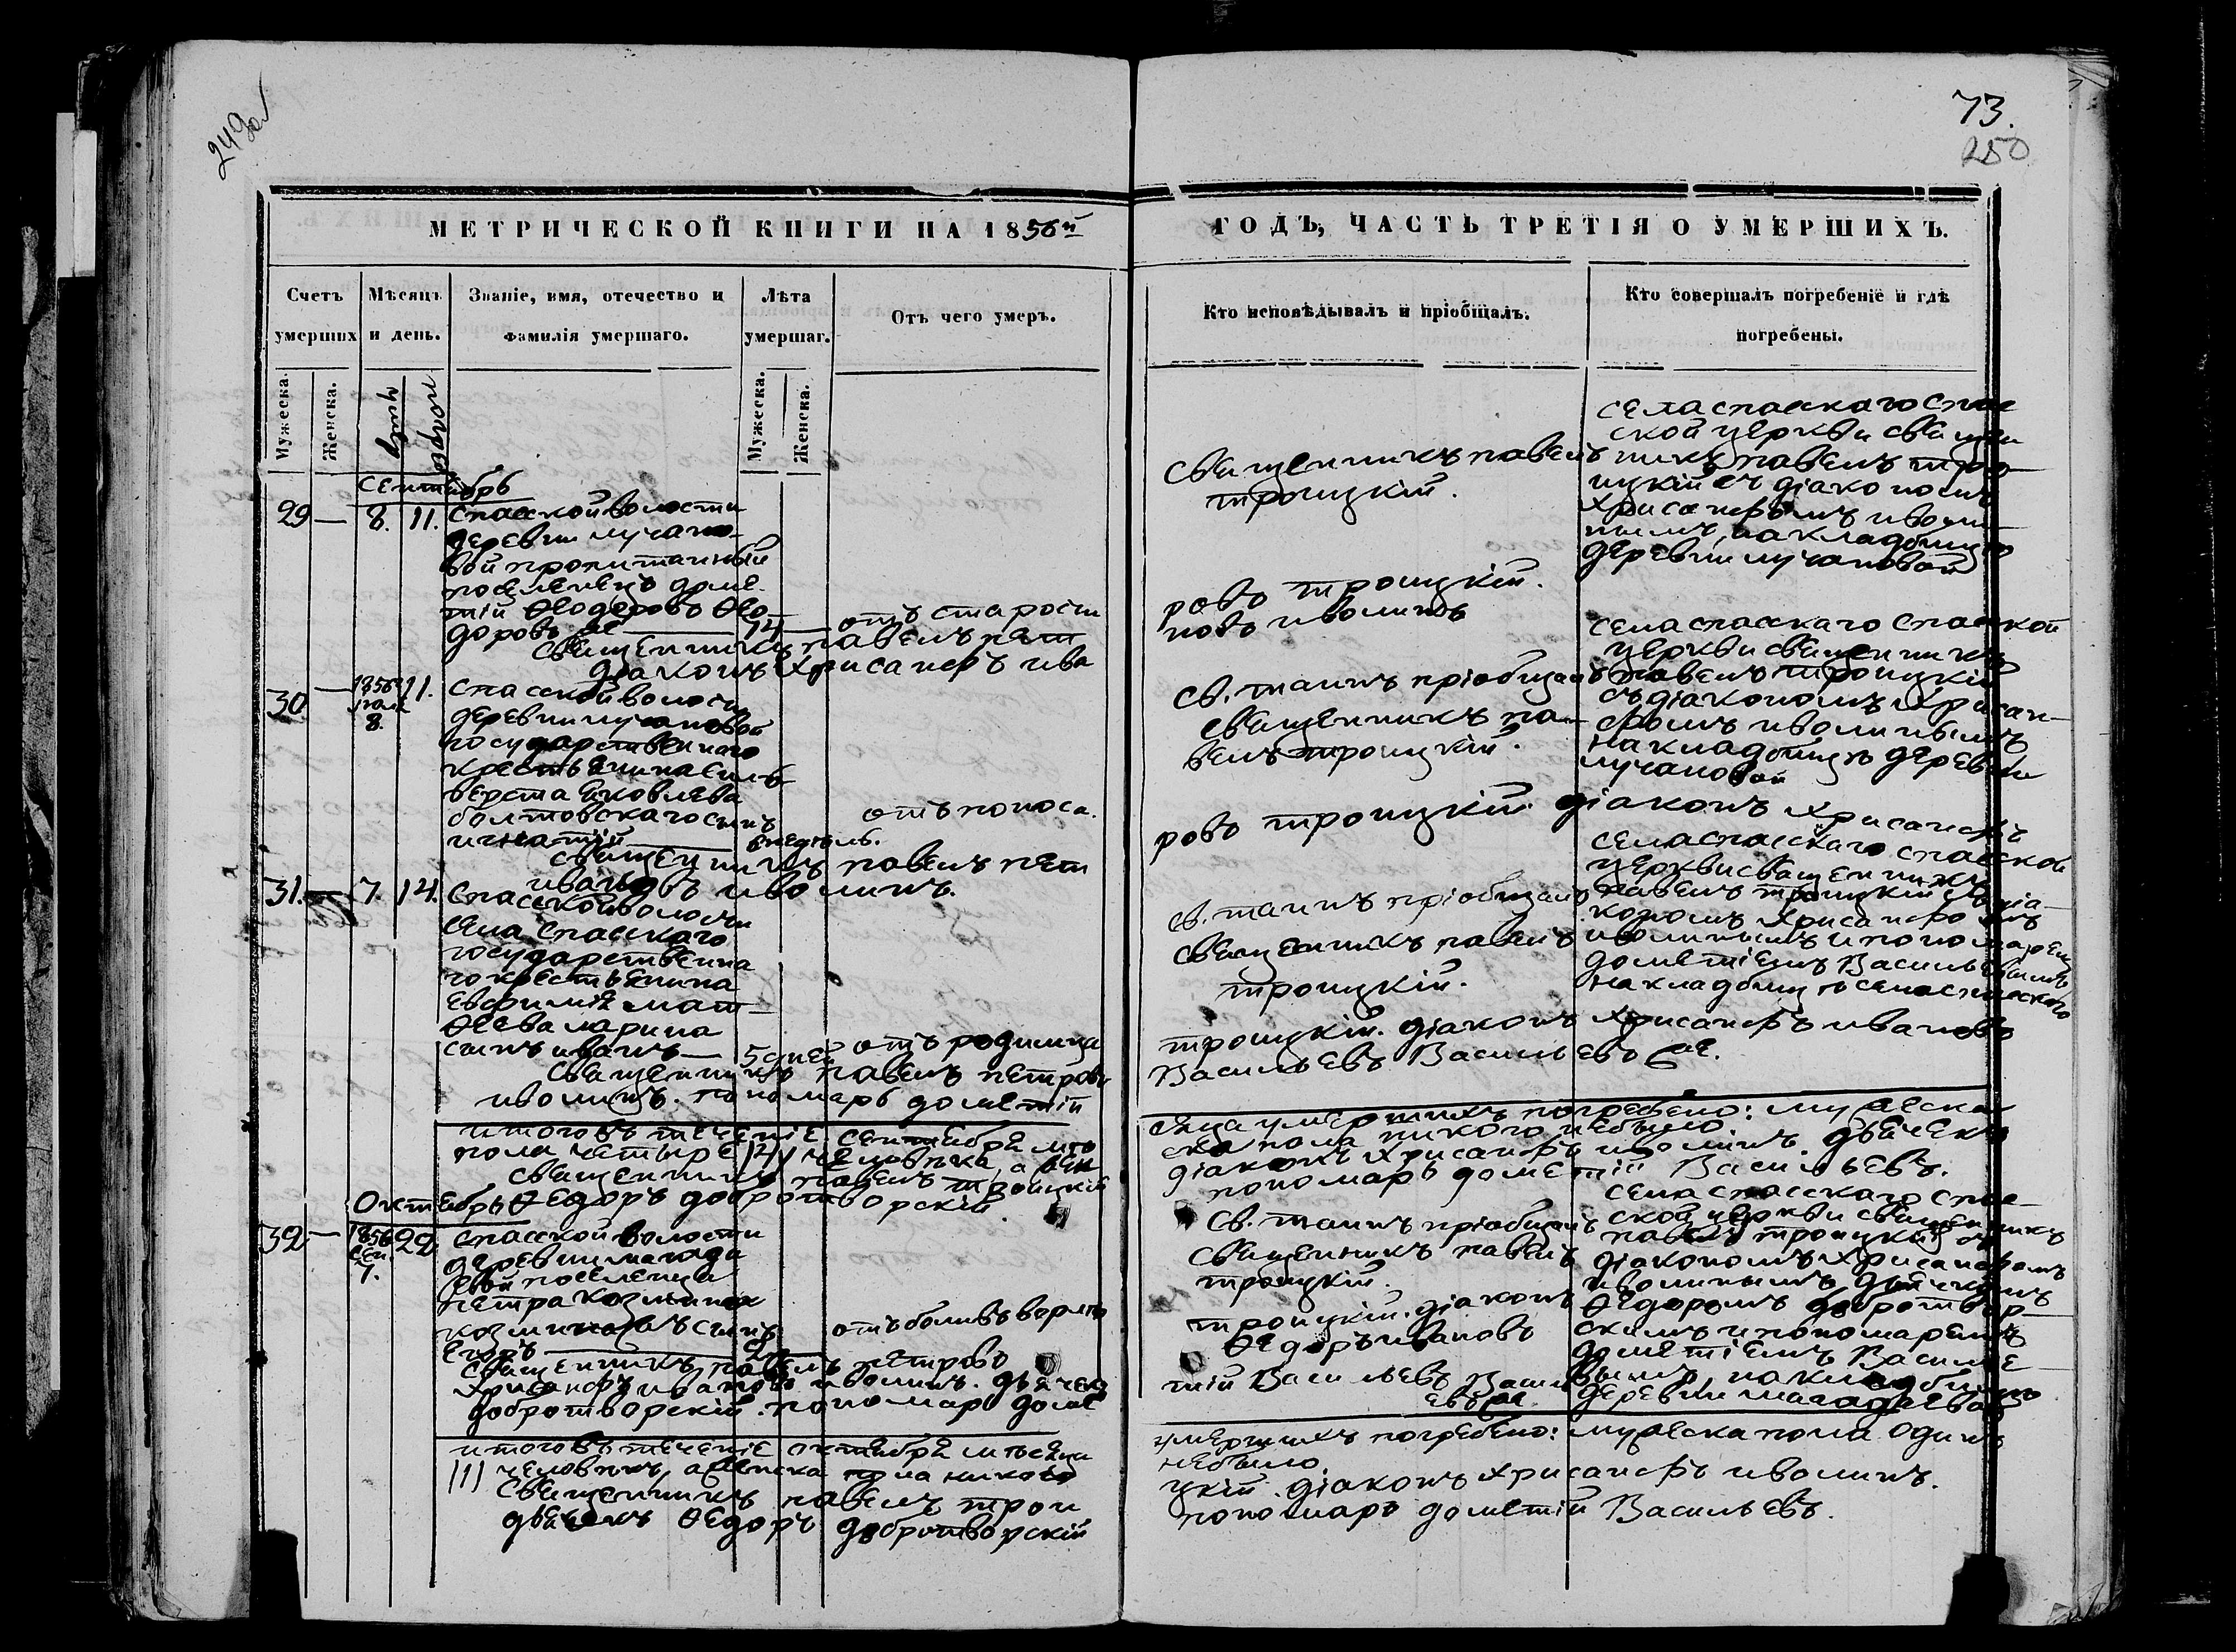 249об
73.
250
МЕТРИЧЕСКОЙ КНИГИ НА 1856й
ГОДЪ, ЧАСТЬ ТРЕТІЯ О УМЕРШИХЪ.
Счетъ умерших
Мѣсяцъ и день.
Званіе, имя, отечество и фамилія умершаго.
Лѣта умершаг.
Отъ чего умеръ.
Кто исповѣдывалъ и пріобщалъ.
Кто совершалъ погребеніе и гдѣ погребены.
Мужеска.
Женска.
Мужеска.
Женска.
Сентябрь
29 — 8. 11. Спасской волости
деревни лучано-
вой пропитанный
поселенецъ доме-
тій Ѳеодоровъ Ѳео-
доровъ 74 отъ старости
Священникъ павелъ
троицкій.
села спасскаго спас
ской церкви священ
никъ павелъ тро-
ицкій съ діакономъ
Хрисанфомъ иволи-
нымъ, на кладбищѣ
деревни лучановой
Священникъ павелъ пет
ровъ троицкій.
діаконъ Хрисанфъ ива
новъ иволинъ
30 — 1856 11. Спасской волости
8.
деревни лучановой
государственнаго
крестьянина силь
верста яковлева
болтовскаго сынъ
игнатій недѣль. отъ поноса.
св. таинъ пріобщалъ
священникъ па-
велъ троицкій.
села спасскаго спасской
церкви священникъ
павелъ троицкій
съ діакономъ Хрисан-
фомъ иволинымъ
на кладбищѣ деревни
лучановой
Священникъ павелъ пет
ровъ троицкій. діаконъ Хрисанфъ
ивановъ иволинъ.
31. — 7. 14. Спасской волости
села спасскаго
государственна
го крестьянина
Евфимія мат-
ѳеева ларина
сынъ иванъ — 5 дней отъ родимца
св. таинъ пріобщалъ
священникъ павелъ
троицкій.
села спасскаго спасской
церкви священникъ
павелъ троицкій съ діа-
кономъ Хрисанфомъ
иволинымъ и пономаремъ
дометіемъ Васильевымъ
на кладбищѣ села спасскаго
Священникъ павелъ петровъ
троицкій. діаконъ Хрисанфъ ивановъ
иволинъ. пономарь дометій
Васильевъ Васильевъ
итого въ теченіе сентября мѣ
сяца умершихъ погребено: мужеска
пола четыре /4/ человѣка, а жен
ска пола никого небыло.
Священникъ павелъ троицкій
діаконъ Хрисанфъ иволинъ. дьячекъ
Ѳедоръ добротворскій
пономарь дометій Васильевъ.
Октябрь
32 — 1856 22 Спасской волости
Сен.
7.
деревни магада
евой поселенца
петра козмина
козминыхъ сынъ
Егоръ отъ боли въ горлѣ
Св. таинъ пріобщалъ
Священникъ павелъ
троицкій.
села спасскаго спас-
ской церкви священникъ
павелъ троицкій съ
діакономъ Хрисанфомъ
иволинымъ дьячкомъ
Ѳедоромъ добротвор-
скимъ и пономаремъ
дометіемъ Василье-
вымъ, на кладбищѣ
деревни магадаевой
Священникъ павелъ петровъ
троицкій. діаконъ
Хрисанфъ ивановъ иволинъ. дьячекъ
Ѳедоръ ивановъ
добротворскій. пономарь доме
тій Васильевъ Василь
евъ
итого въ теченіе октября мѣсяца
умершихъ погребено: мужеска пола одинъ
/1/ человѣкъ, а женска пола никого
небыло.
Священникъ павелъ трои
цкій. діаконъ Хрисанфъ иволинъ.
дьячекъ Ѳедоръ добротворскій
пономарь дометій Васильевъ.